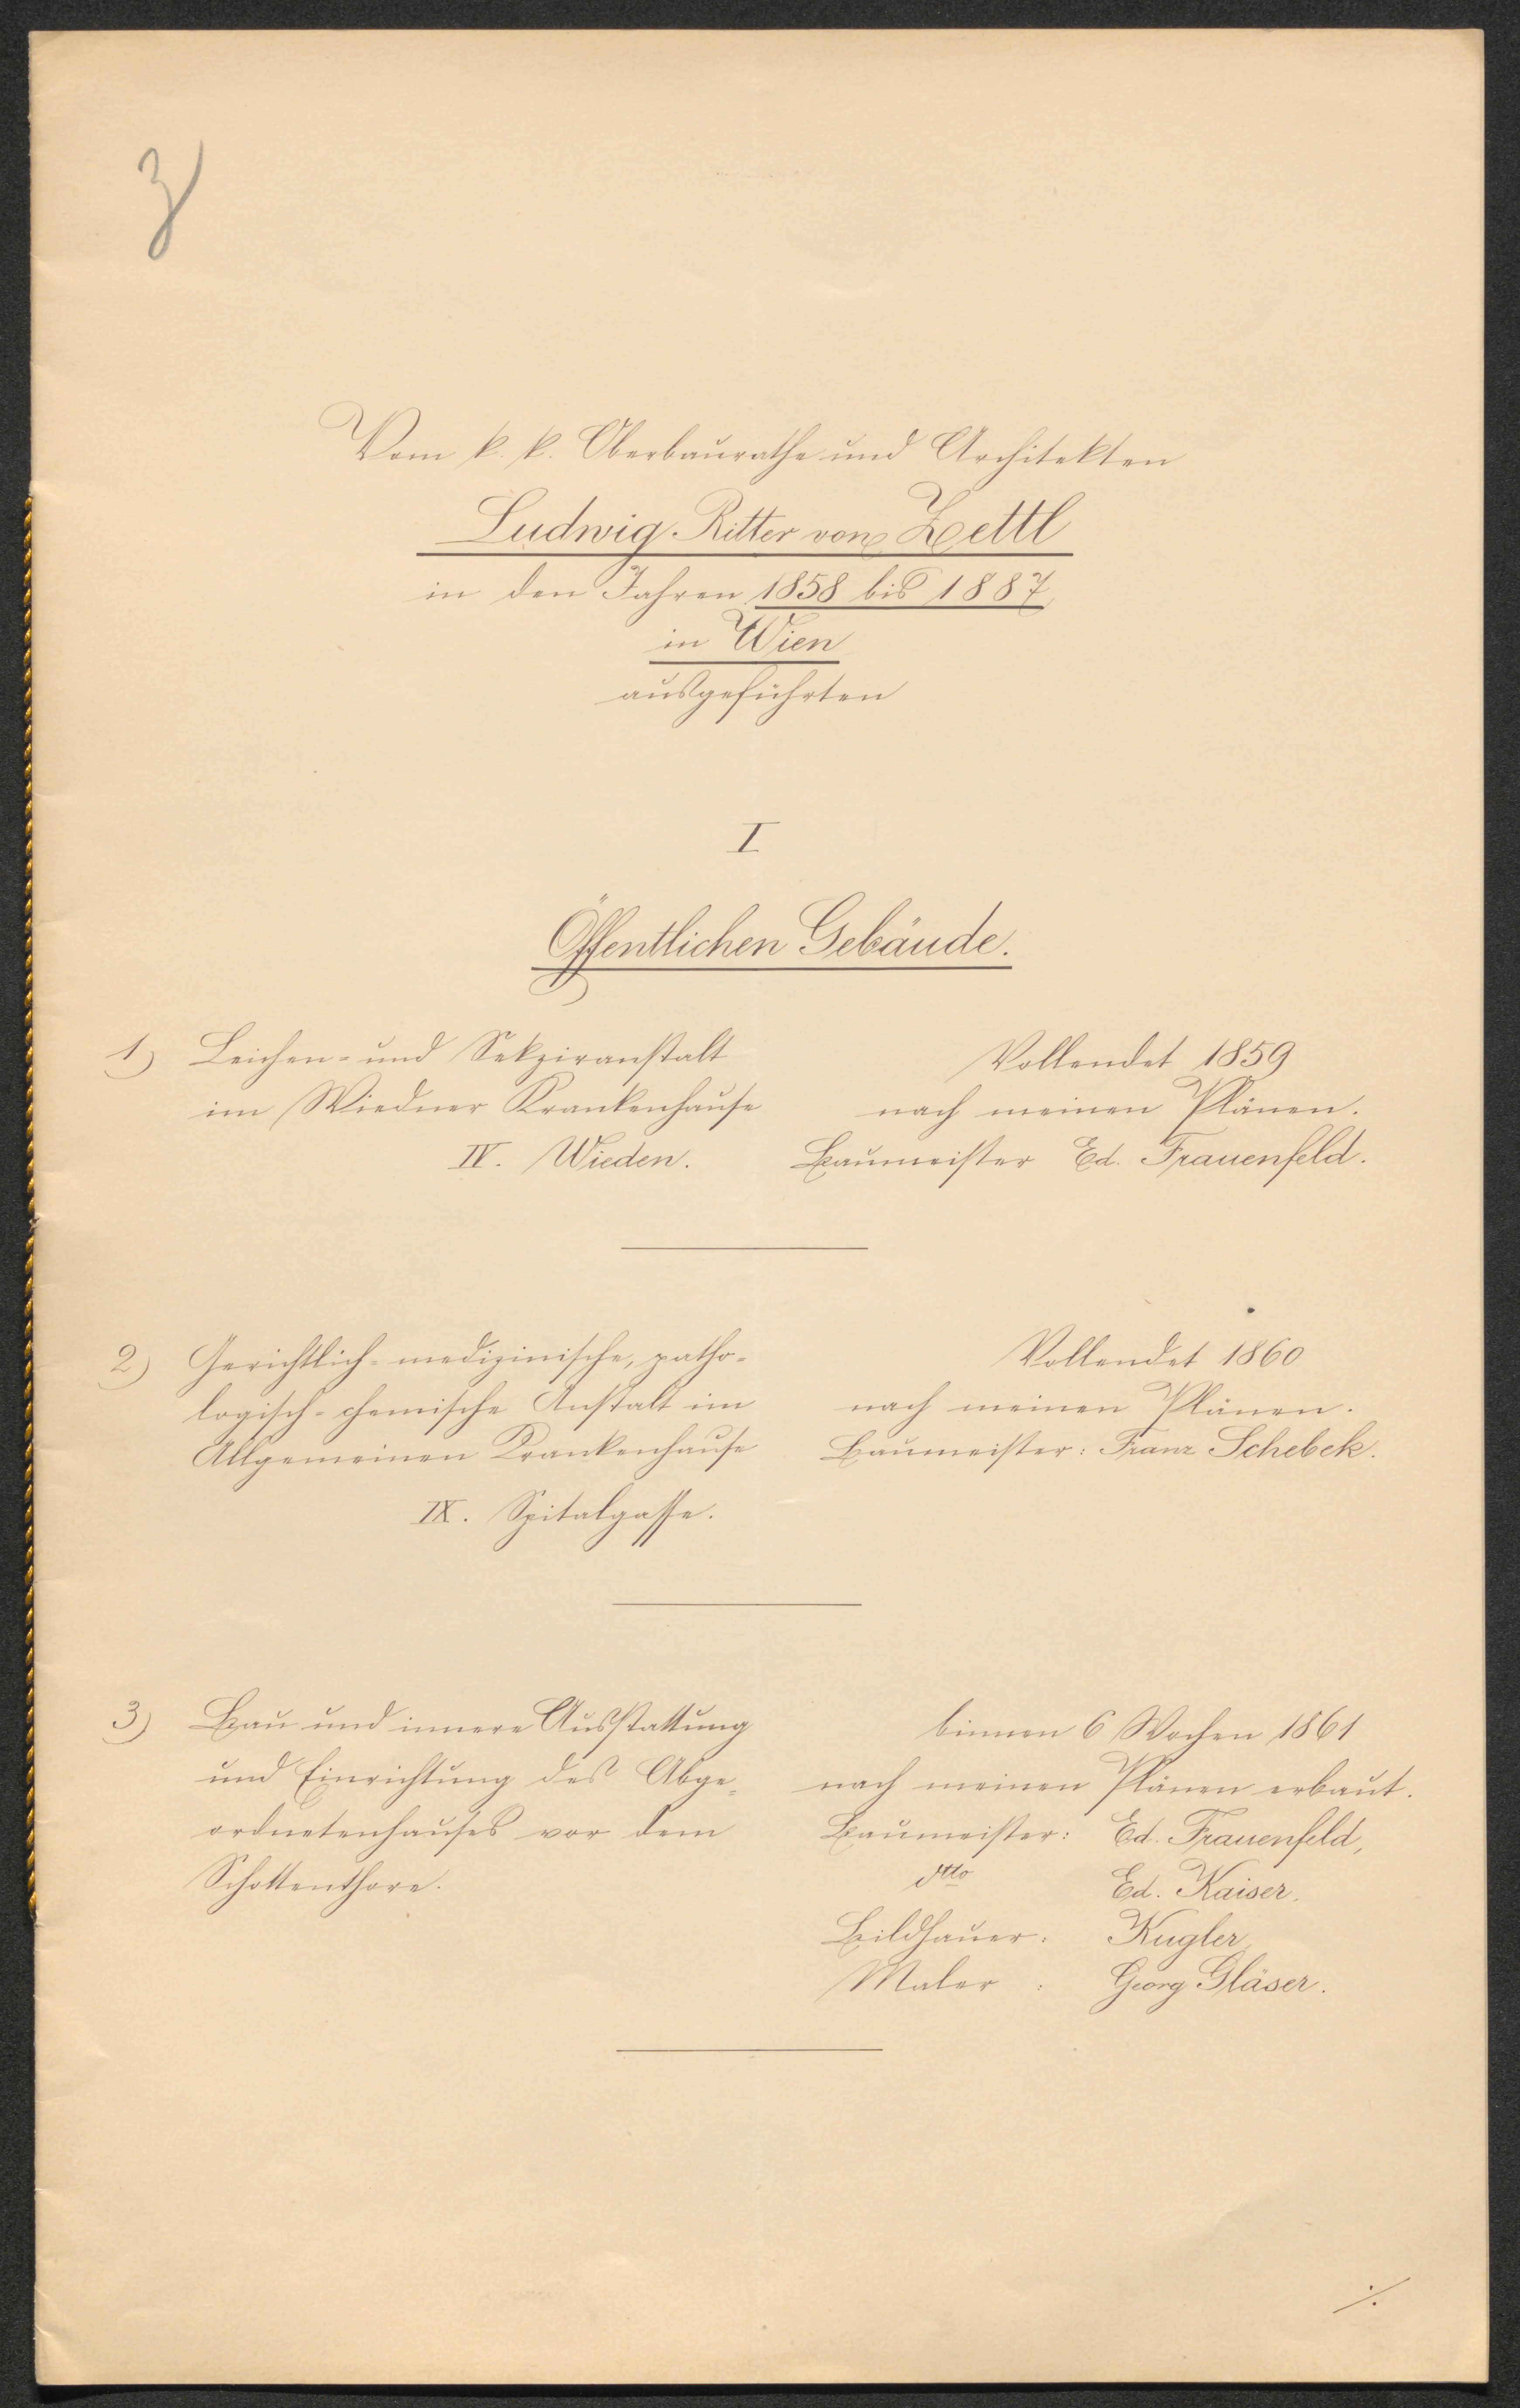 z
Vom k. k. Oberbaurathe und Architekten
Ludwig Ritter von Zettl
in den Jahren 1858 bis 1887
in Wien
ausgeführten
I
Öffentlichen Gebäude.
1) Leichen- und Sekziranstalt
im Wiedner Krankenhause
IV. Wieden.
Vollendet 1859
nach meinen Plänen.
Baumeister Ed. Frauenfeld.
2) Gerichtlich-medizinische, patho-
logisch-chemische Anstalt im
Allgemeinen Krankenhause
IX. Spitalgasse.
Vollendet 1860
nach meinen Plänen.
Baumeister: Franz Schebek.
3) Bau und innere Ausstattung
und Einrichtung des Abge-
ordnetenhauses vor dem
Schottenthore.
binnen 6 Wochen 1861
nach meinen Plänen erbaut.
Baumeister: Ed. Frauenfeld,
dtto Ed. Kaiser.
Bildhauer: Kugler,
Maler : Georg Gläser.
./.